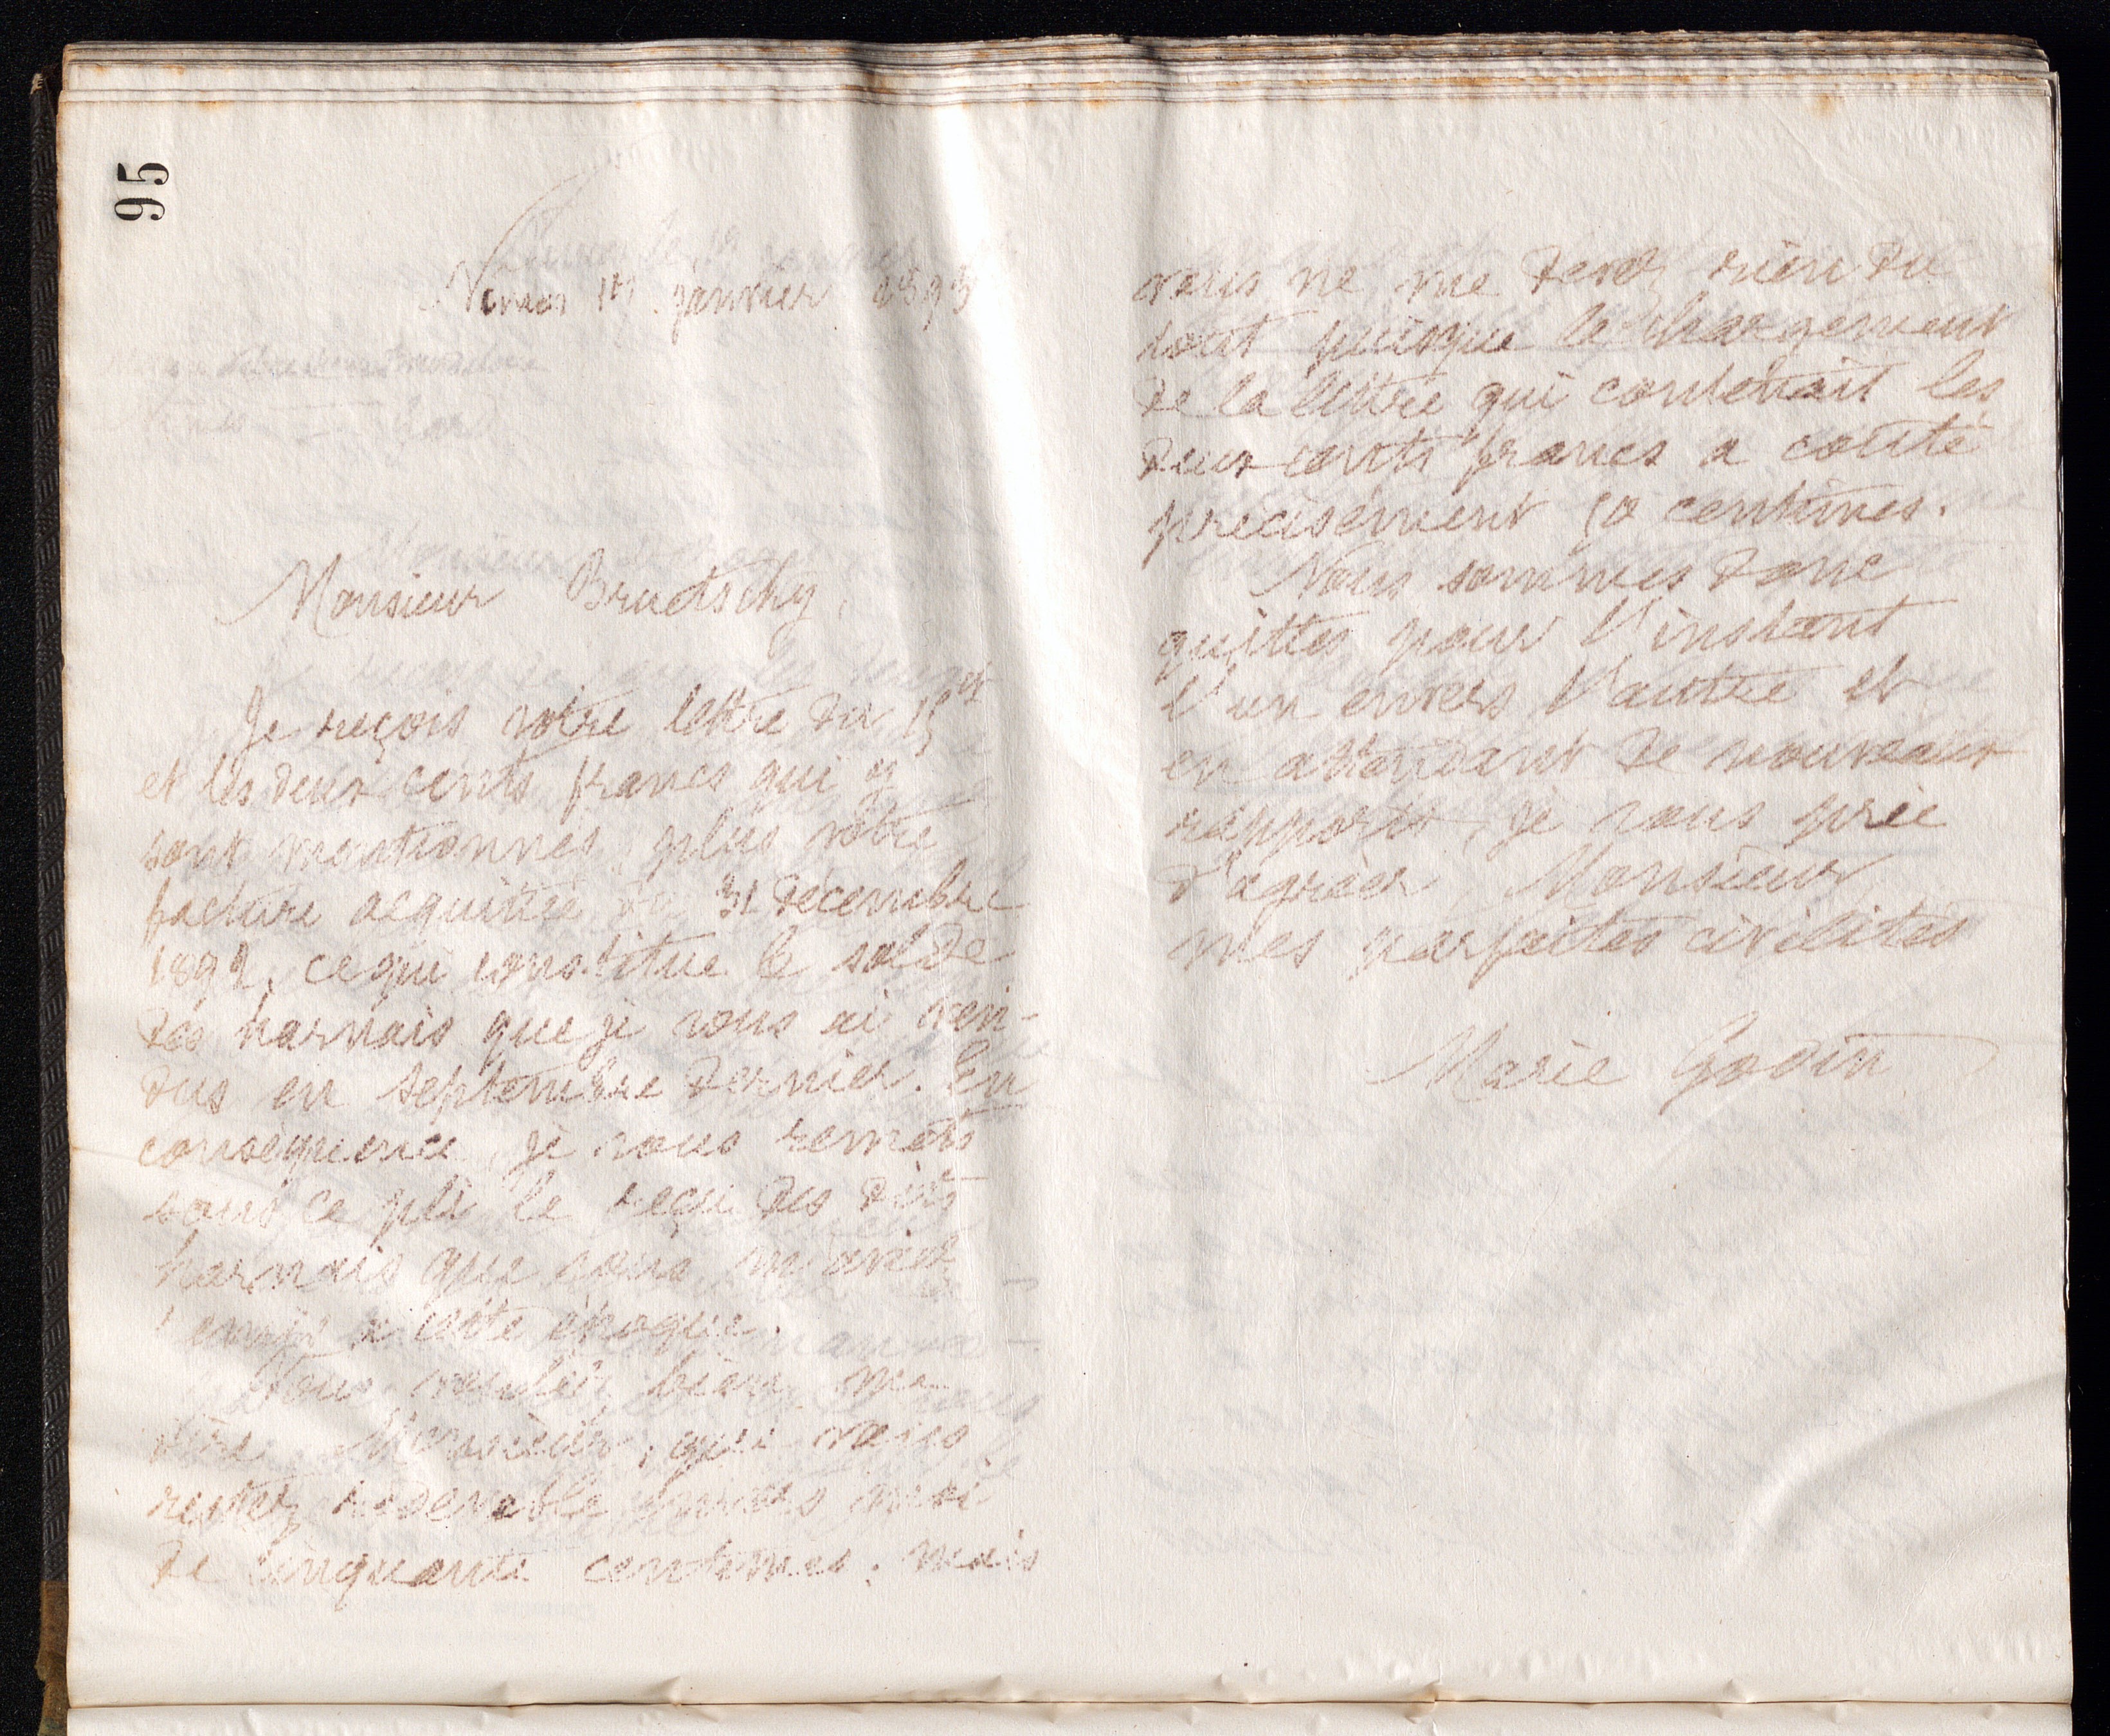 95
Nimes 1er janvier 1893
Monsieur Bruetschy,
Je reçois votre lettre du 15 ct
et les deux cents francs qui y
sont mentionnés, plus votre
facture acquittée du 31 décembre
1892, ce qui constitue le solde
des harnais que je vous ai ven-
dus en septembre dernier. En
conséquence, je vous remets
sous ce pli le reçu des dits
harnais que vous m'aviez
envoyé à cette époque.
Vous voulez bien me
dire, Monsieur, que vous
restez redevable envers moi
de cinquante centimes; mais
vous ne me devez rien du
tout puisque le chargement
de la lettre qui contenait les
deux cents francs a coûté
précisément 50 centimes.
Nous sommes donc
quittes pour l'instant
l'un envers l'autre et
en attendant de nouveaux
rapports, je vous prie
d'agréer, Monsieur
mes parfaites civilités
Marie Godin